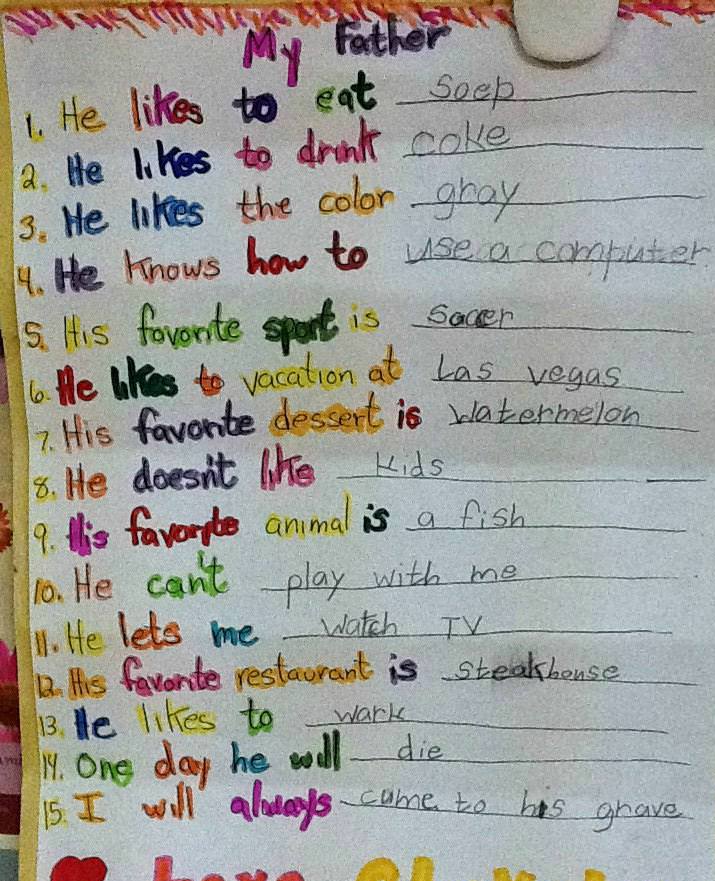 My Father
1. He likes to eat Soep
2. He likes to drink coke
3. He likes the color gray
4. He knows how to use a computer
5. His favorite sport is Soccer
6. He likes to vacation at Las vegas
7. His favorite dessert is Watermelon
8. He doesn't like kids
9. His favorite animal is a fish
10. He can't play with me
11. He lets me watch TV
12. His favorite restaurant is steakhouse
13. He likes to wark
14. One day he will die
15. I will always came to his grave